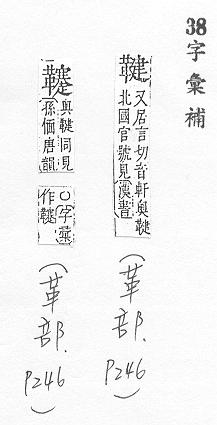 38字彙補
鞬 又居言切音軒與鞬
北國官號見漢書
(革部. P246)
與鞬同見
孫愐唐韻
〇字彙
作
(革部. P246)